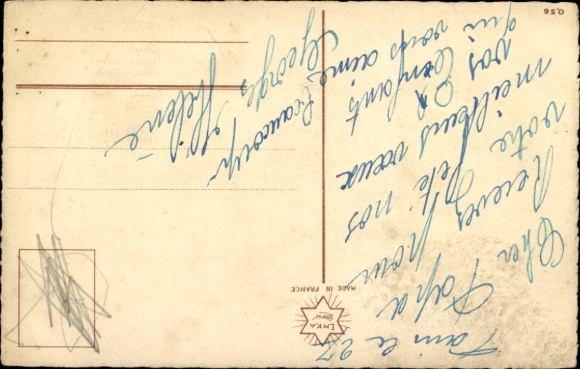 Paris le 23
Cher Papa
Recevez pour
votre fête nos
meilleurs vœux
vos enfants
qui vous aime beaucoup
Georges, Hélène
MADE IN FRANCE
EMKA
Paris
0,56